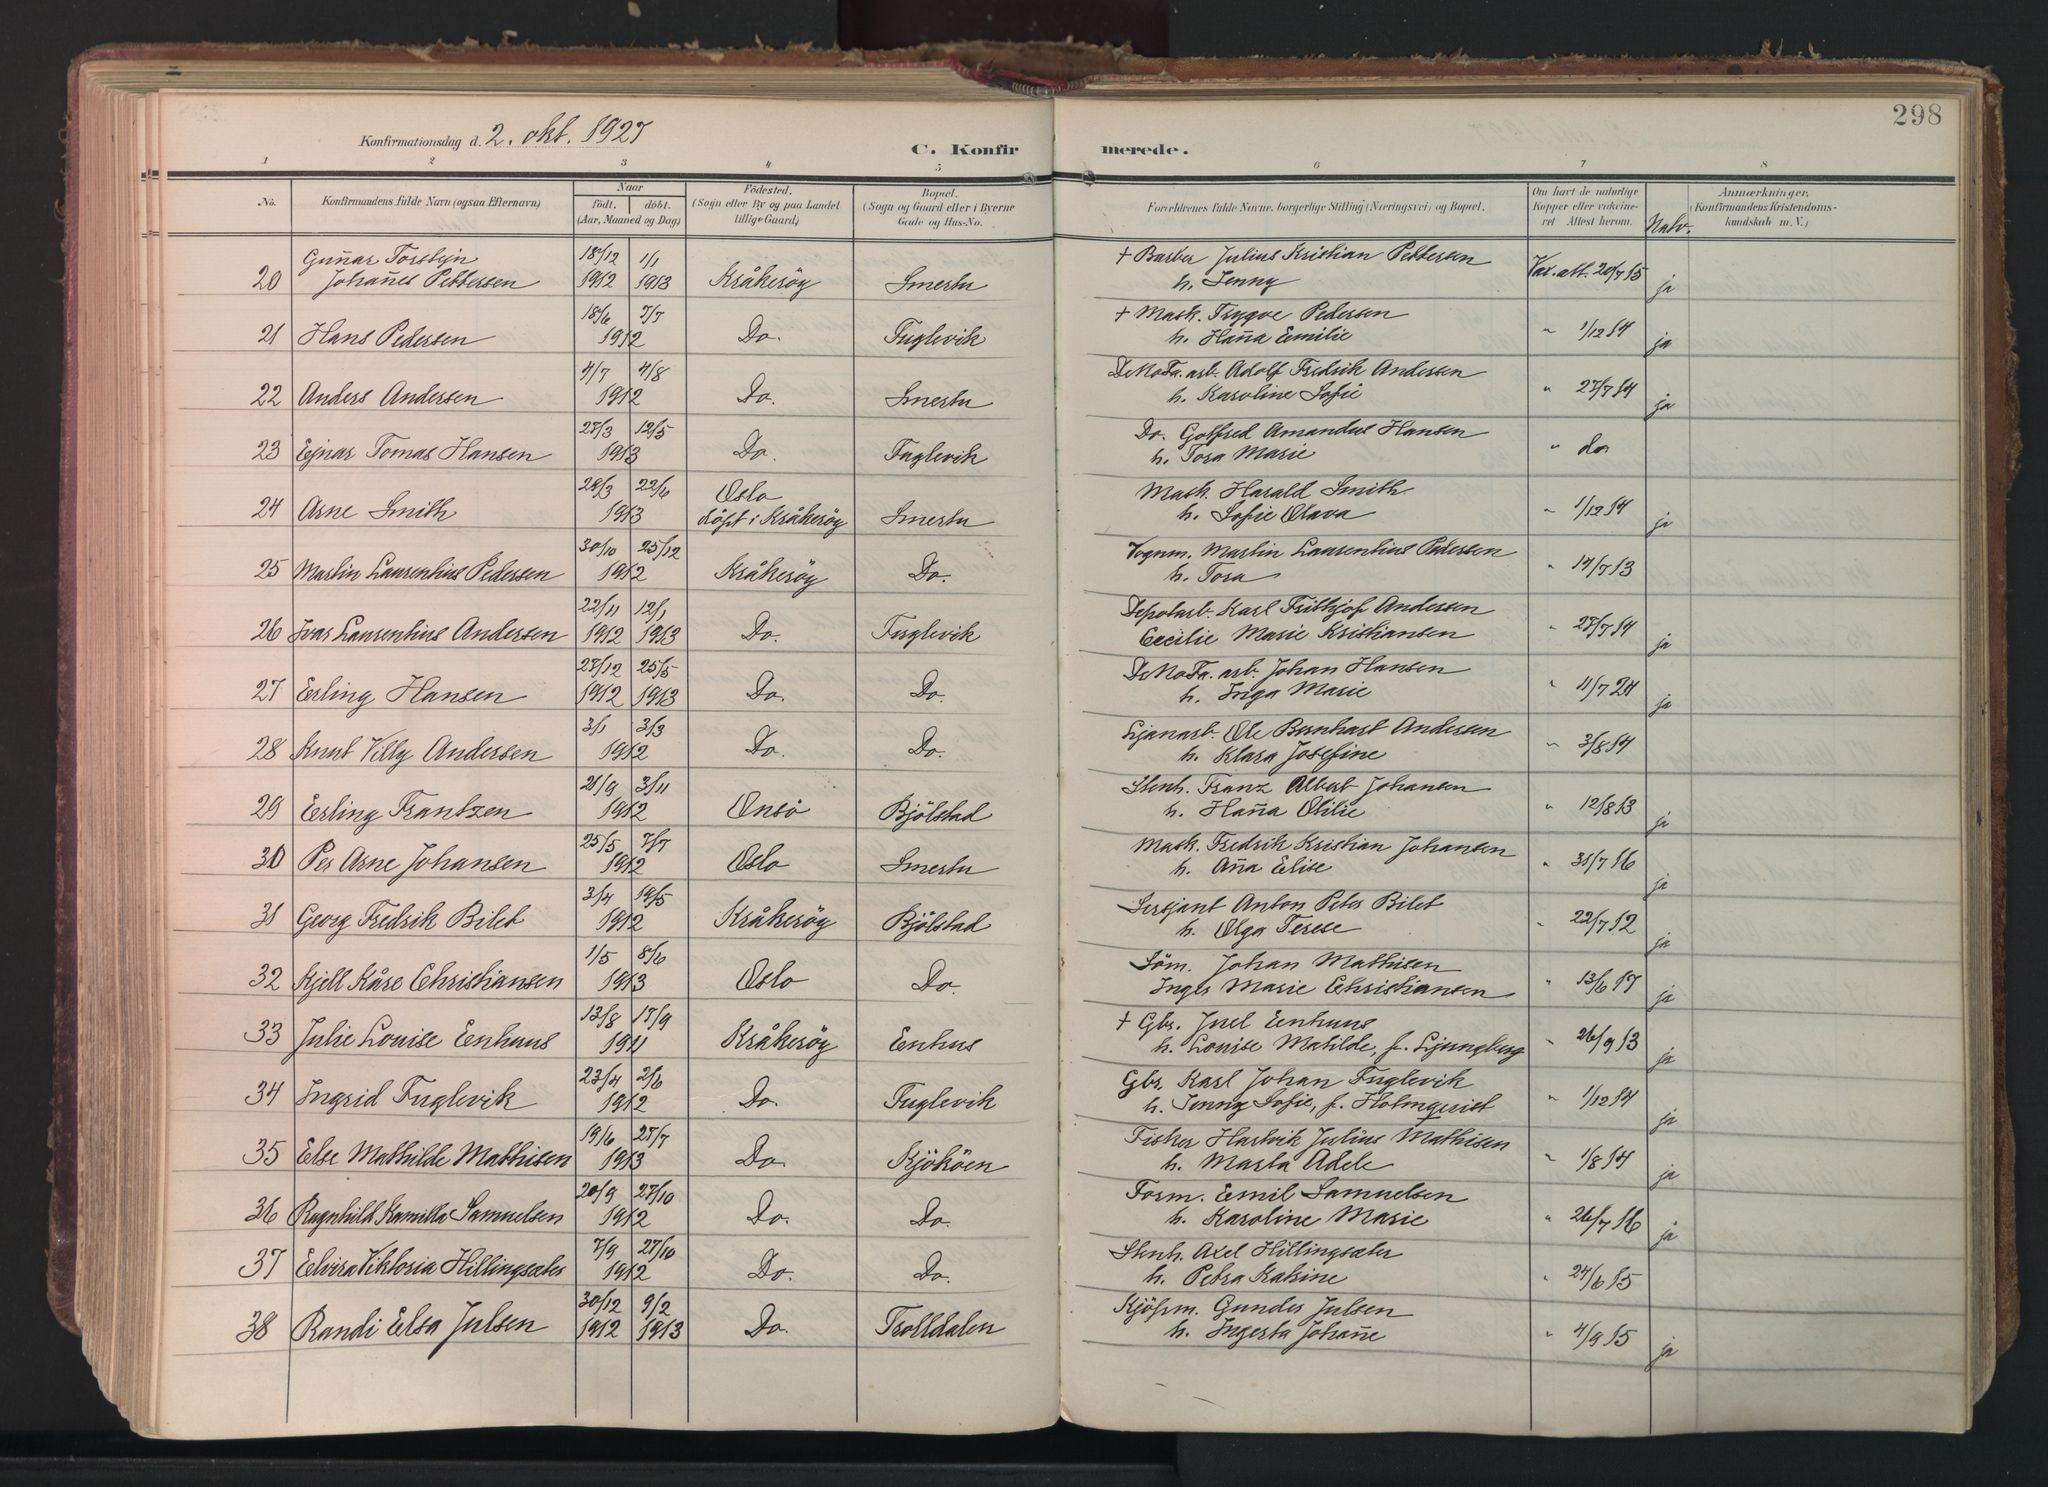 298
Konfirmationsdag d. 2. okt. 1927
C. Konfirmerede.
1 2 3 4 5 6 7 8
No. Konfirmandens fulde Navn (ogsaa Efternavn) Naar født. døbt. (Aar, Maaned og Dag) Fødested. (Sogn eller By og paa Landet tillige Gaard) Bopæl. (Sogn og Gaard eller i Byerne Gade og Hus-No. Forældrenes fulde Navne, borgerlige Stilling (Næringsvei) og Bopæl. Om havt de naturlige Kopper eller vaksineret Attest herom. Natv. Anmærkninger. (Konfirmandens Kristendomskundskab m. V.)
Gunnar Torstejn 18/12 1/1 + Barber Julius Kristian Pettersen
20 Johannes Pettersen 1912 1913 Kråkeröy Smertu h. Jenny Vax. att. 20/7 15 ja
18/6 7/7 + Mask. Trygve Pedersen
21 Hans Pedersen 1912 Do. Fuglevik h. Hanna Emilie " 1/12 14 ja
4/7 4/8 DeNoFa. arb. Adolf Fredrik Andersen
22 Anders Andersen 1912 Do. Smertu h. Karoline Sofie " 27/7 14 ja
27/3 12/5 Do. Golfred Amandus Hansen
23 Ejnar Tomas Hansen 1913 Do. Fuglevik h. Tora Marie " do
29/3 22/6 Oslo Mask. Harald Smith
24 Arne Smith 1913 döpt i Kråkeröy Smertu h. Sofie Olava " 1/12 14 ja
30/10 25/12 Vognm. Martin Laurentius Pedersen
25 Martin Laurentius Pedersen 1912 Kråkeröy Do. h. Tora " 14/7 13
22/11 12/1 Depotarb. Karl Frithjof Andersen
26 Ivar Laurentius Andersen 1912 1913 Do. Fuglevik Cecilie Marie Kristiansen " 27/7 14 ja
27/12 25/5 DeNoFa. arb. Johan Hansen
27 Erling Hansen 1912 1913 Do. Do. h. Inga Marie " 11/7 24 ja
3/1 3/3 Ljanarb. Ole Bernhart Andersen
28 Knut Villy Andersen 1912 Do. Do. h. Klara Josefine " 3/8 14 ja
21/9 3/11 Stenh. Franz Albert Johansen
29 Erling Frantzen 1912 Onsö Bjölstad h. Hanna Otilie " 12/8 13 ja
25/5 7/7 Mask. Fredrik Kristian Johansen
30 Per Arne Johansen 1912 Oslo Smertu h. Anna Elise " 31/7 16 ja
3/4 19/5 Sersjant Anton Peter Bilet
31 Georg Fredrik Bilet 1912 Kråkeröy Bjölstad h. Olga Terese " 22/7 12 ja
1/5 8/6 Söm. Johan Mathisen
32 Kjell Kåre Christiansen 1913 Oslo Do. Inger Marie Christiansen " 13/6 17 ja
13/8 17/9 + Gbr. Juel Enhuus
33 Julie Louise Enhuus 1911 Kråkeröy Enhus h. Louise Matilde, f. Ljungberg " 26/9 13 ja
23/4 2/6 Gbr. Karl Johan Fuglevik
34 Ingrid Fuglevik 1912 Do. Fuglevik h. Jenny Sofie, f. Holmqvist " 1/12 14 ja
19/6 27/7 Fisker Hartvik Julius Mathisen
35 Else Mathilde Mathisen 1913 Do. Kjököen h. Marta Adele " 1/8 14 ja
20/9 27/10 Form. Emil Samuelsen
36 Ragnhild Kamilla Samuelsen 1912 Do. Do. h. Karoline Marie " 26/7 16 ja
7/9 27/10 Stenh. Axel Hillingsæter
37 Elvira Viktoria Hillingsæter 1912 Do. Do. h. Petra Katrine " 24/6 15
30/12 9/2 Kjöpm. Gunder Julsen
38 Randi Elsa Julsen 1912 1913 Do. Trolldalen h. Ingerta Johanne " 4/9 15 ja